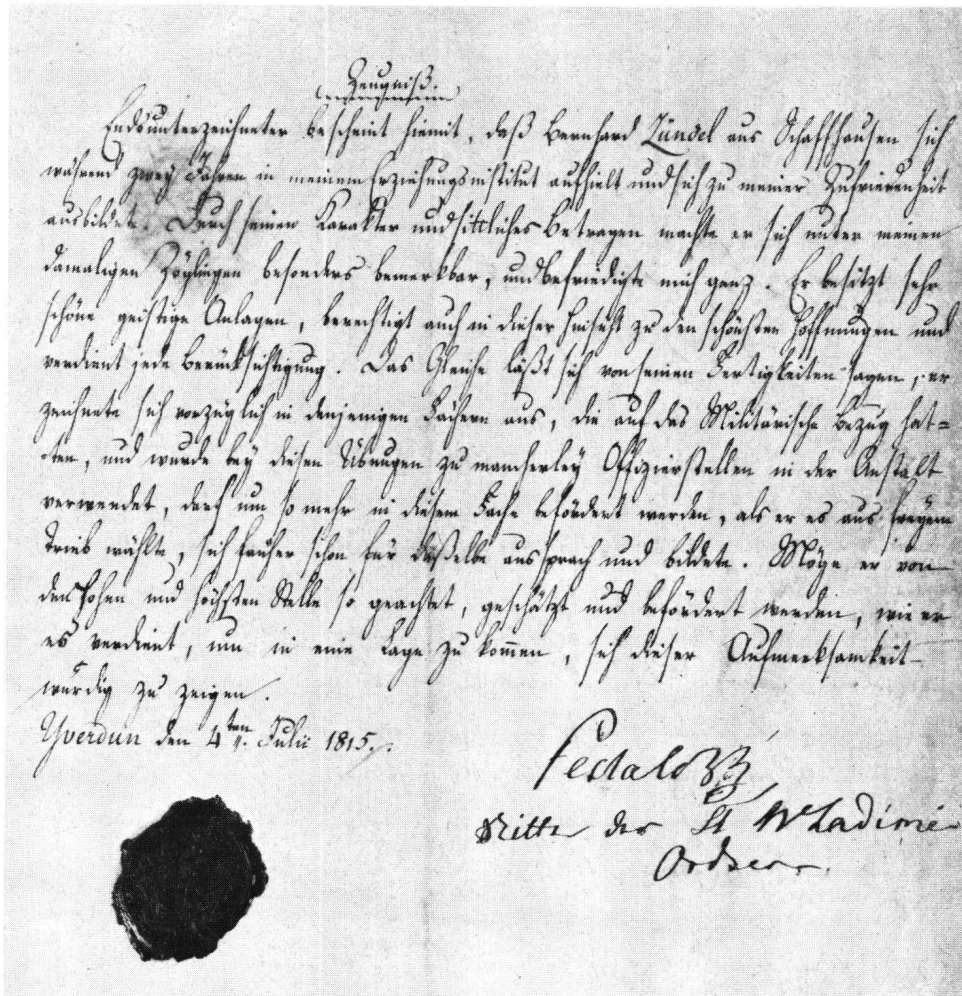 Zeugniß.
Endsunterzeichneter bescheint hiemit, daß Bernhard Zündel aus Schaffhausen sich
während zwey Jahren in meinem Erziehungsinstitut aufhielt und sich zu meiner Zufriedenheit
ausbildete. Durch seinen Karakter und sittliches Betragen machte er sich unter meinen
damaligen Zöglingen besonders bemerkbar, und befriedigte mich ganz. Er besitzt sehr
schöne geistige Anlagen, berechtigt auch in dieser Hinsicht zu den schönsten Hoffnungen und
verdient jede Berücksichtigung. Das Gleiche läßt sich von seinen Fertigkeiten sagen, er
zeichnete sich vorzüglich in denjenigen Fächern aus, die auf das Militärische Bezug hat=
ten, und wurde bey diesen Übungen zu mancherley Offizierstellen in der Anstalt
verwendet, darf um so mehr in diesem Fache befördert werden, als er es aus freyem
Trieb wählte, sich früher schon für dasselbe aussprach und bildete. Möge er von
der hohen und höchsten Stelle so geachtet, geschätzt und befördert werden, wie er
es verdient, um in eine Lage zu kommen, sich dieser Aufmerksamkeit
würdig zu zeigen.
Yverdun den 4ten Julii 1815.
Pestalozzi
Ritter des St Wladimir
Ordens